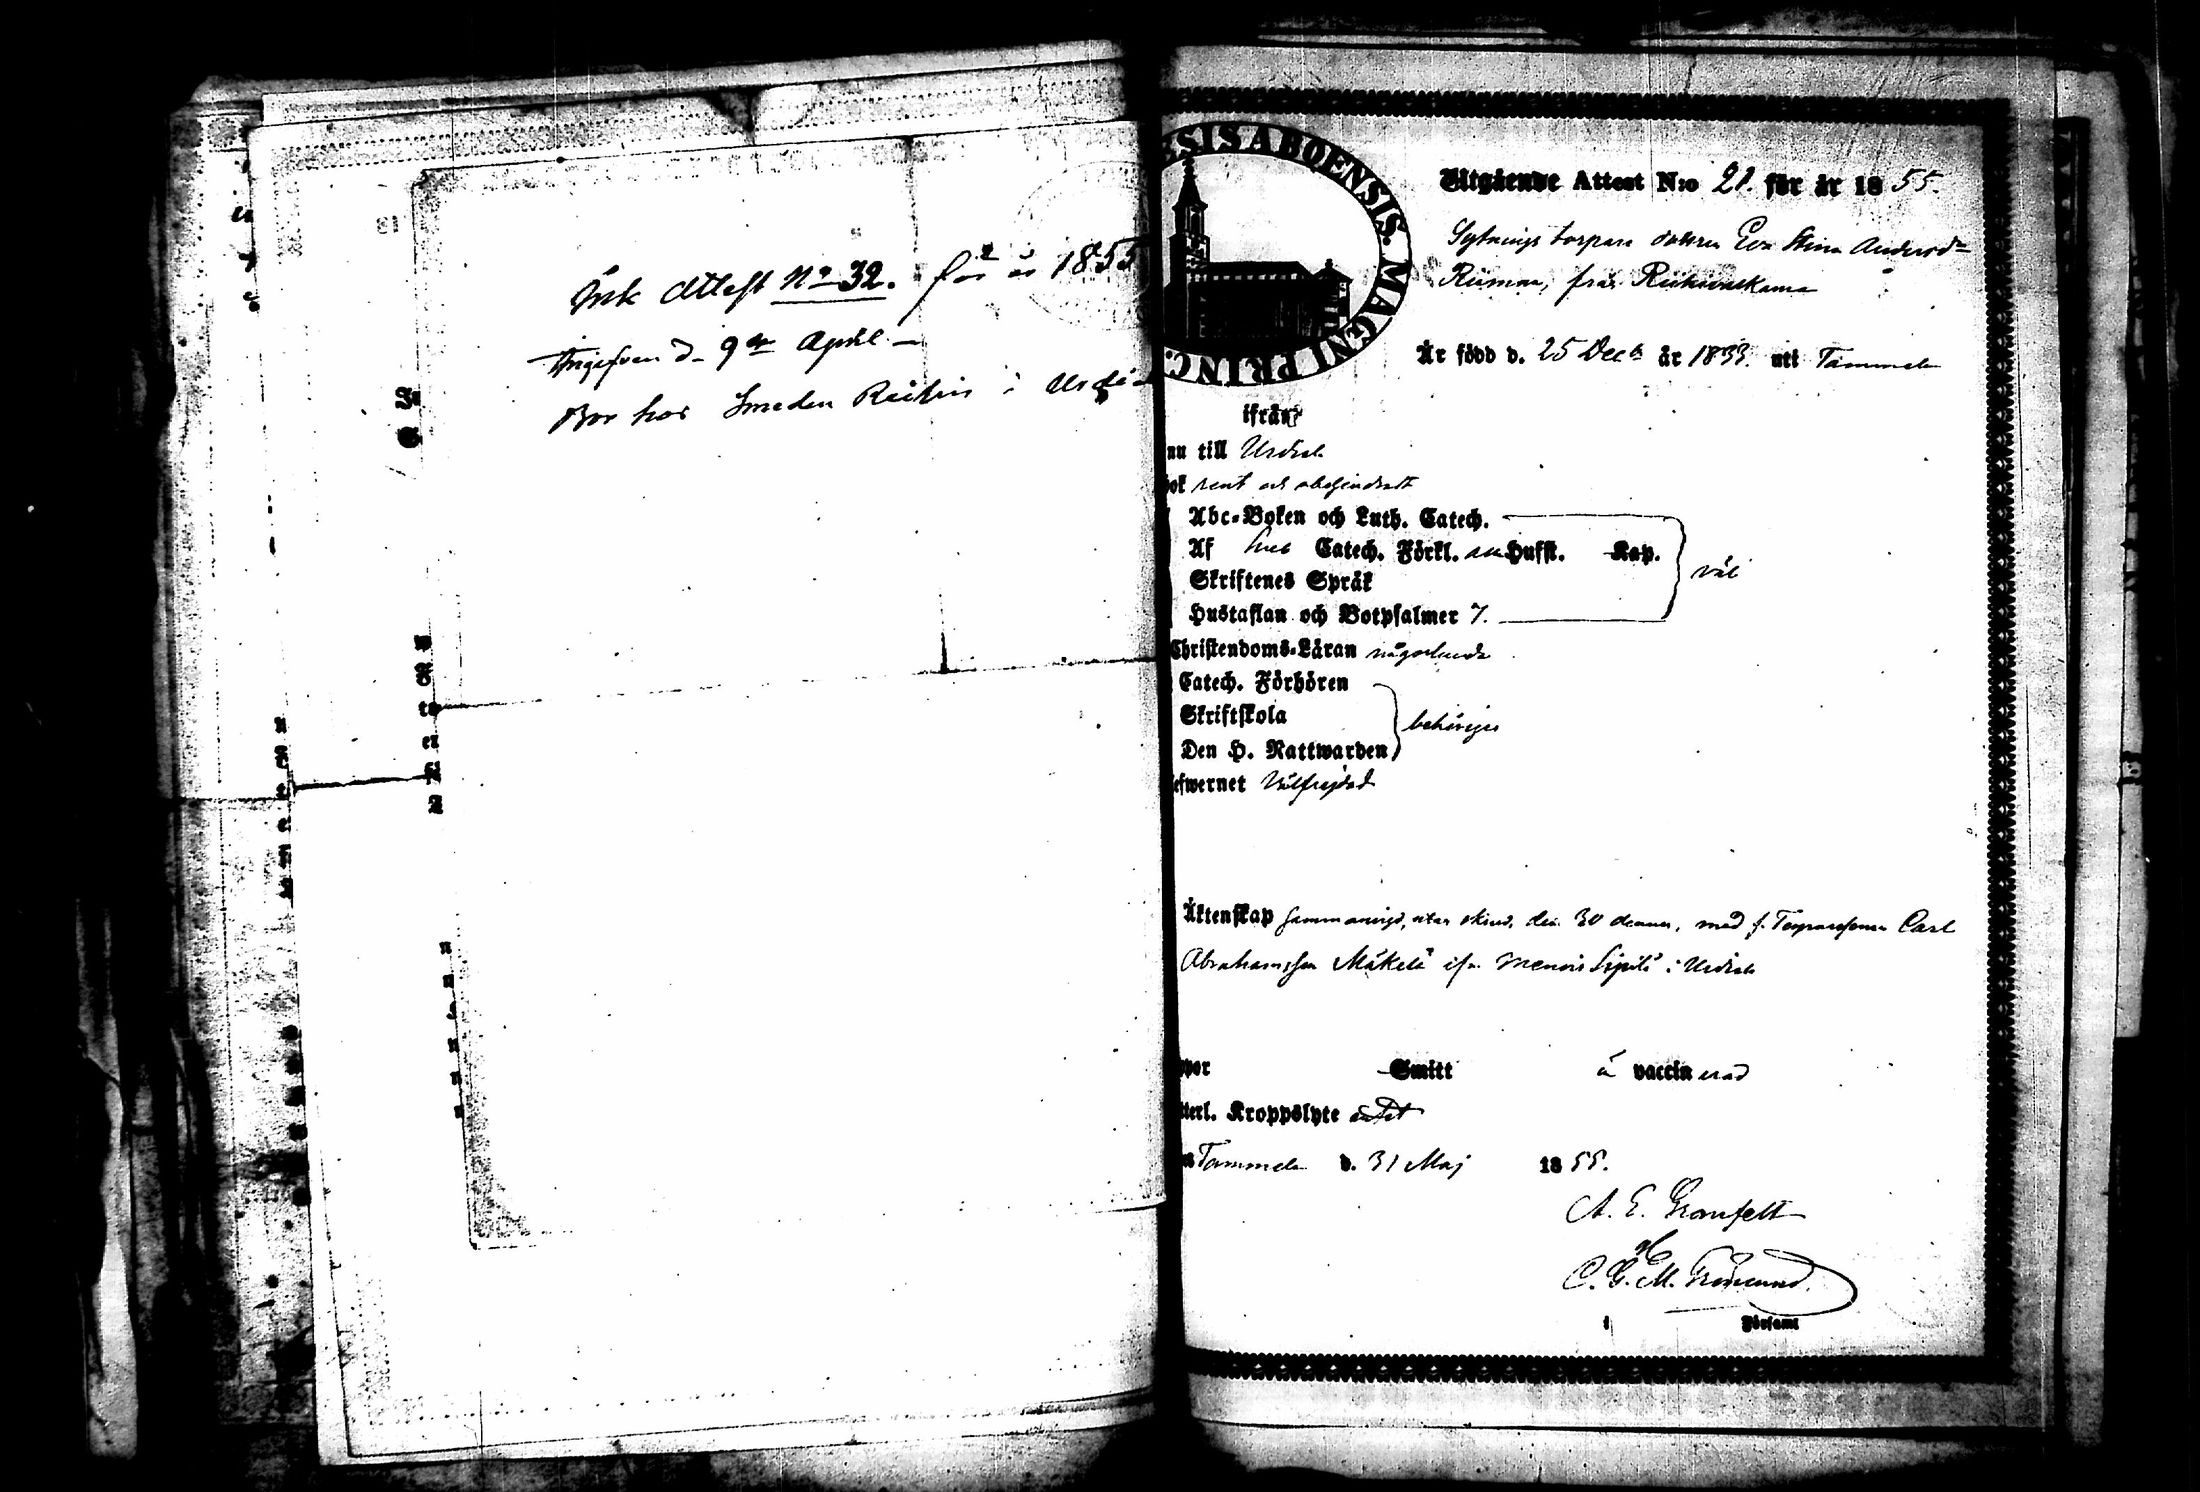 Ink Attest No 32. för år 1855
Angifven d. 9de April
Bor hos Smeden Reikin i Urdia
ESIS ABOENSIS. MAGNI PRINC.
Utgående Attest N:o 21. för år 1855.
Sytnings torpare dottren Eva Stina Andersd:r
Riimma, från Riihivalkama
Är född d. 25 Decb är 1833. uti Tammela
ifrån
nu till Urdiala
ok rent och obehindradt
Abc-Boken och Luth. Catech.
Af Sveb Catech. Förkl. Hufst. Kap.
Skriftenes Språk
Hustaflan och Botpsalmer 7.
väl
Christendoms-Läran någorlunda
Catech. Förhören
Skriftskola
Den H. Nattwarden
behörigen
efwernet Välfrejdad
Äktenskap sammanvigd, utan skrud, den 30 dennes, med f. Torparesonen Carl
Abrahamsson Mäkelä ifrn Menois Sipilä i Urdiala
ppor Smitt ä vaccinerad
tterl. Kroppslyte intet
Tammela d. 31 Maj 1855.
A. E. Granfelt
C. G. M. Trömund.
i Församl